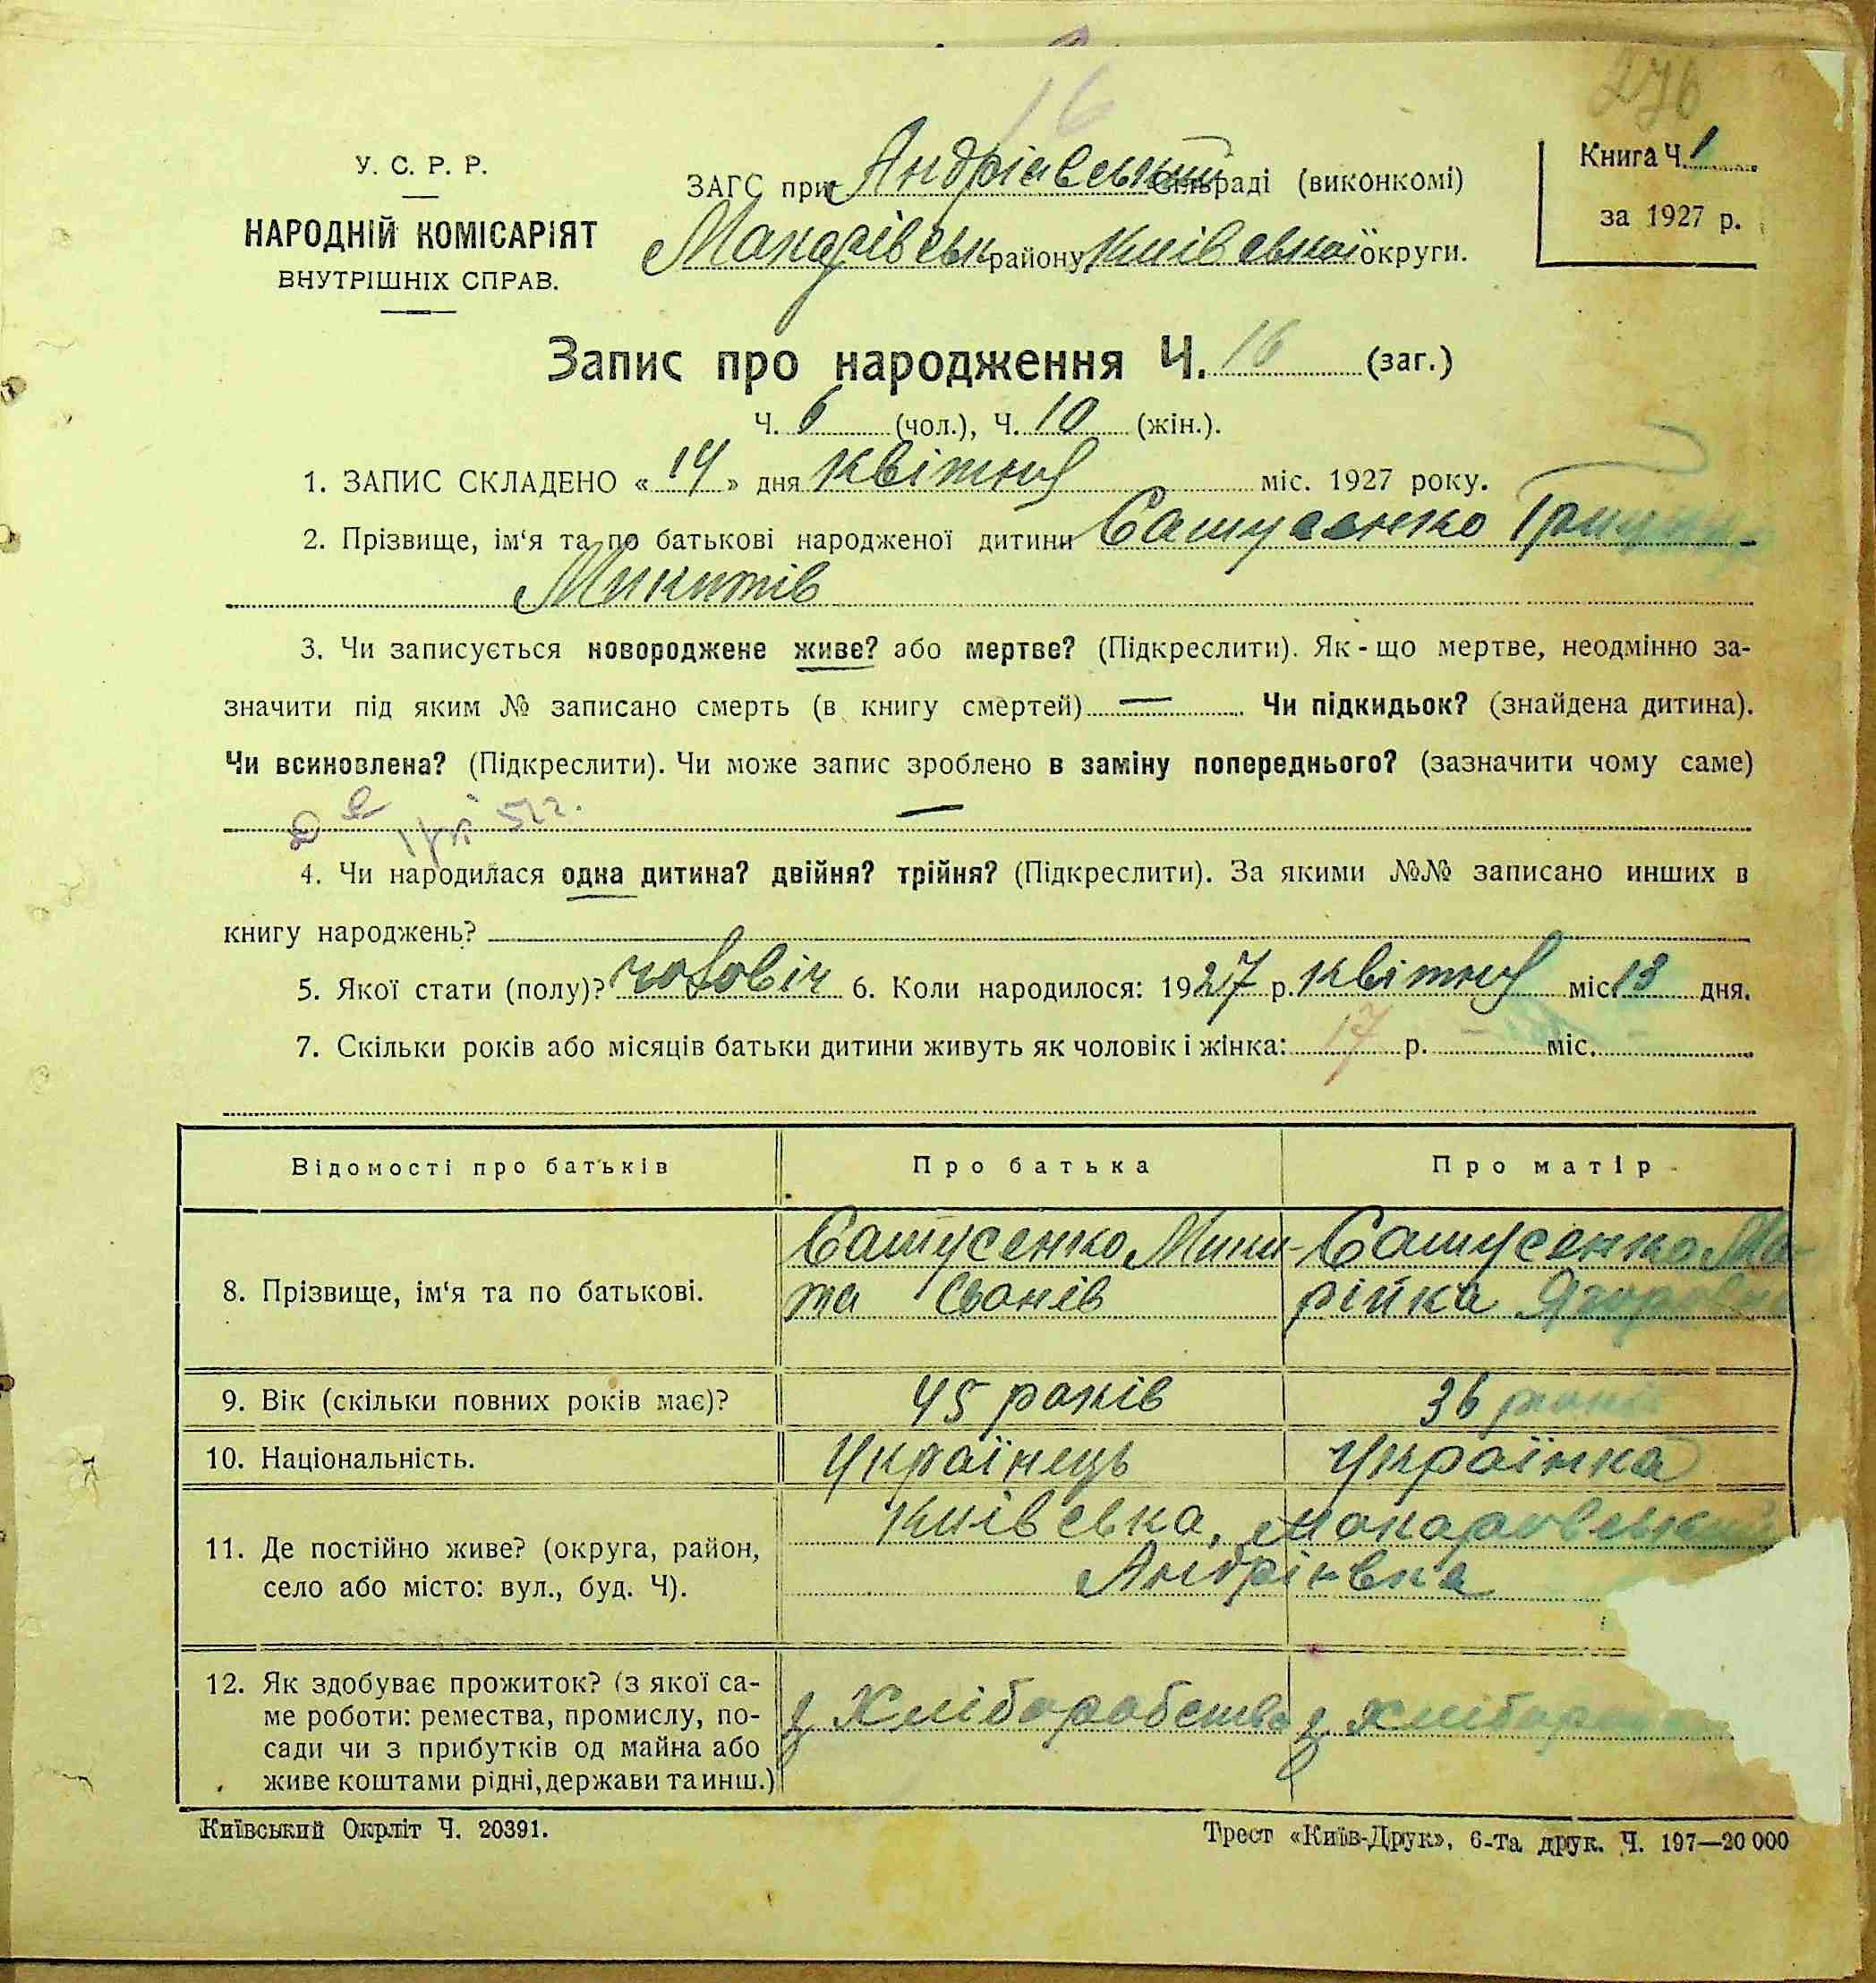 276
16
У. С. Р. Р.
НАРОДНІЙ КОМІСАРІЯТ
ВНУТРІШНІХ СПРАВ.
ЗАГС при Андріівський сільраді (виконкомі)
Макарівськ району Київської округи.
Книга Ч. 1
за 1927 р.
Запис про народження Ч. 16 (заг.)
Ч. 6 (чол.), Ч. 10 (жін.).
1. ЗАПИС СКЛАДЕНО « 14 » дня квітня міс. 1927 року.
2. Прізвище, ім‘я та по батькові народженої дитини Сатусенко
Микитів
3. Чи записується новороджене живе? або мертве? (Підкреслити). Як-що мертве, неодмінно за-
значити під яким № записано смерть (в книгу смертей) — Чи підкидьок? (знайдена дитина).
Чи всиновлена? (Підкреслити). Чи може запис зроблено в заміну попереднього? (зазначити чому саме)
—
4. Чи народилася одна дитина? двійня? трійня? (Підкреслити). За якими №№ записано инших в
книгу народжень?
5. Якої стати (полу)? чоловіч 6. Коли народилося: 1927 р. квітня міс. 13 дня.
7. Скільки років або місяців батьки дитини живуть як чоловік і жінка: 17 р. міс.
Відомості про батьків Про батька Про матір
8. Прізвище, ім‘я та по батькові.
Сатусенко Мики-
та Іванів
Сатусенко Ма-
рійка
9. Вік (скільки повних років має)? 45 років 36 років
10. Національність. Українець Українка
11. Де постійно живе? (округа, район,
село або місто: вул., буд. Ч).
Київська, Макаровський
Андріївка
12. Як здобуває прожиток? (з якої са-
ме роботи: ремества, промислу, по-
сади чи з прибутків од майна або
живе коштами рідні, держави та инш.)
з Хліборобства з
Київський Окрліт Ч. 20391.
Трест «Київ-Друк», 6-та друк. Ч. 197—20 000